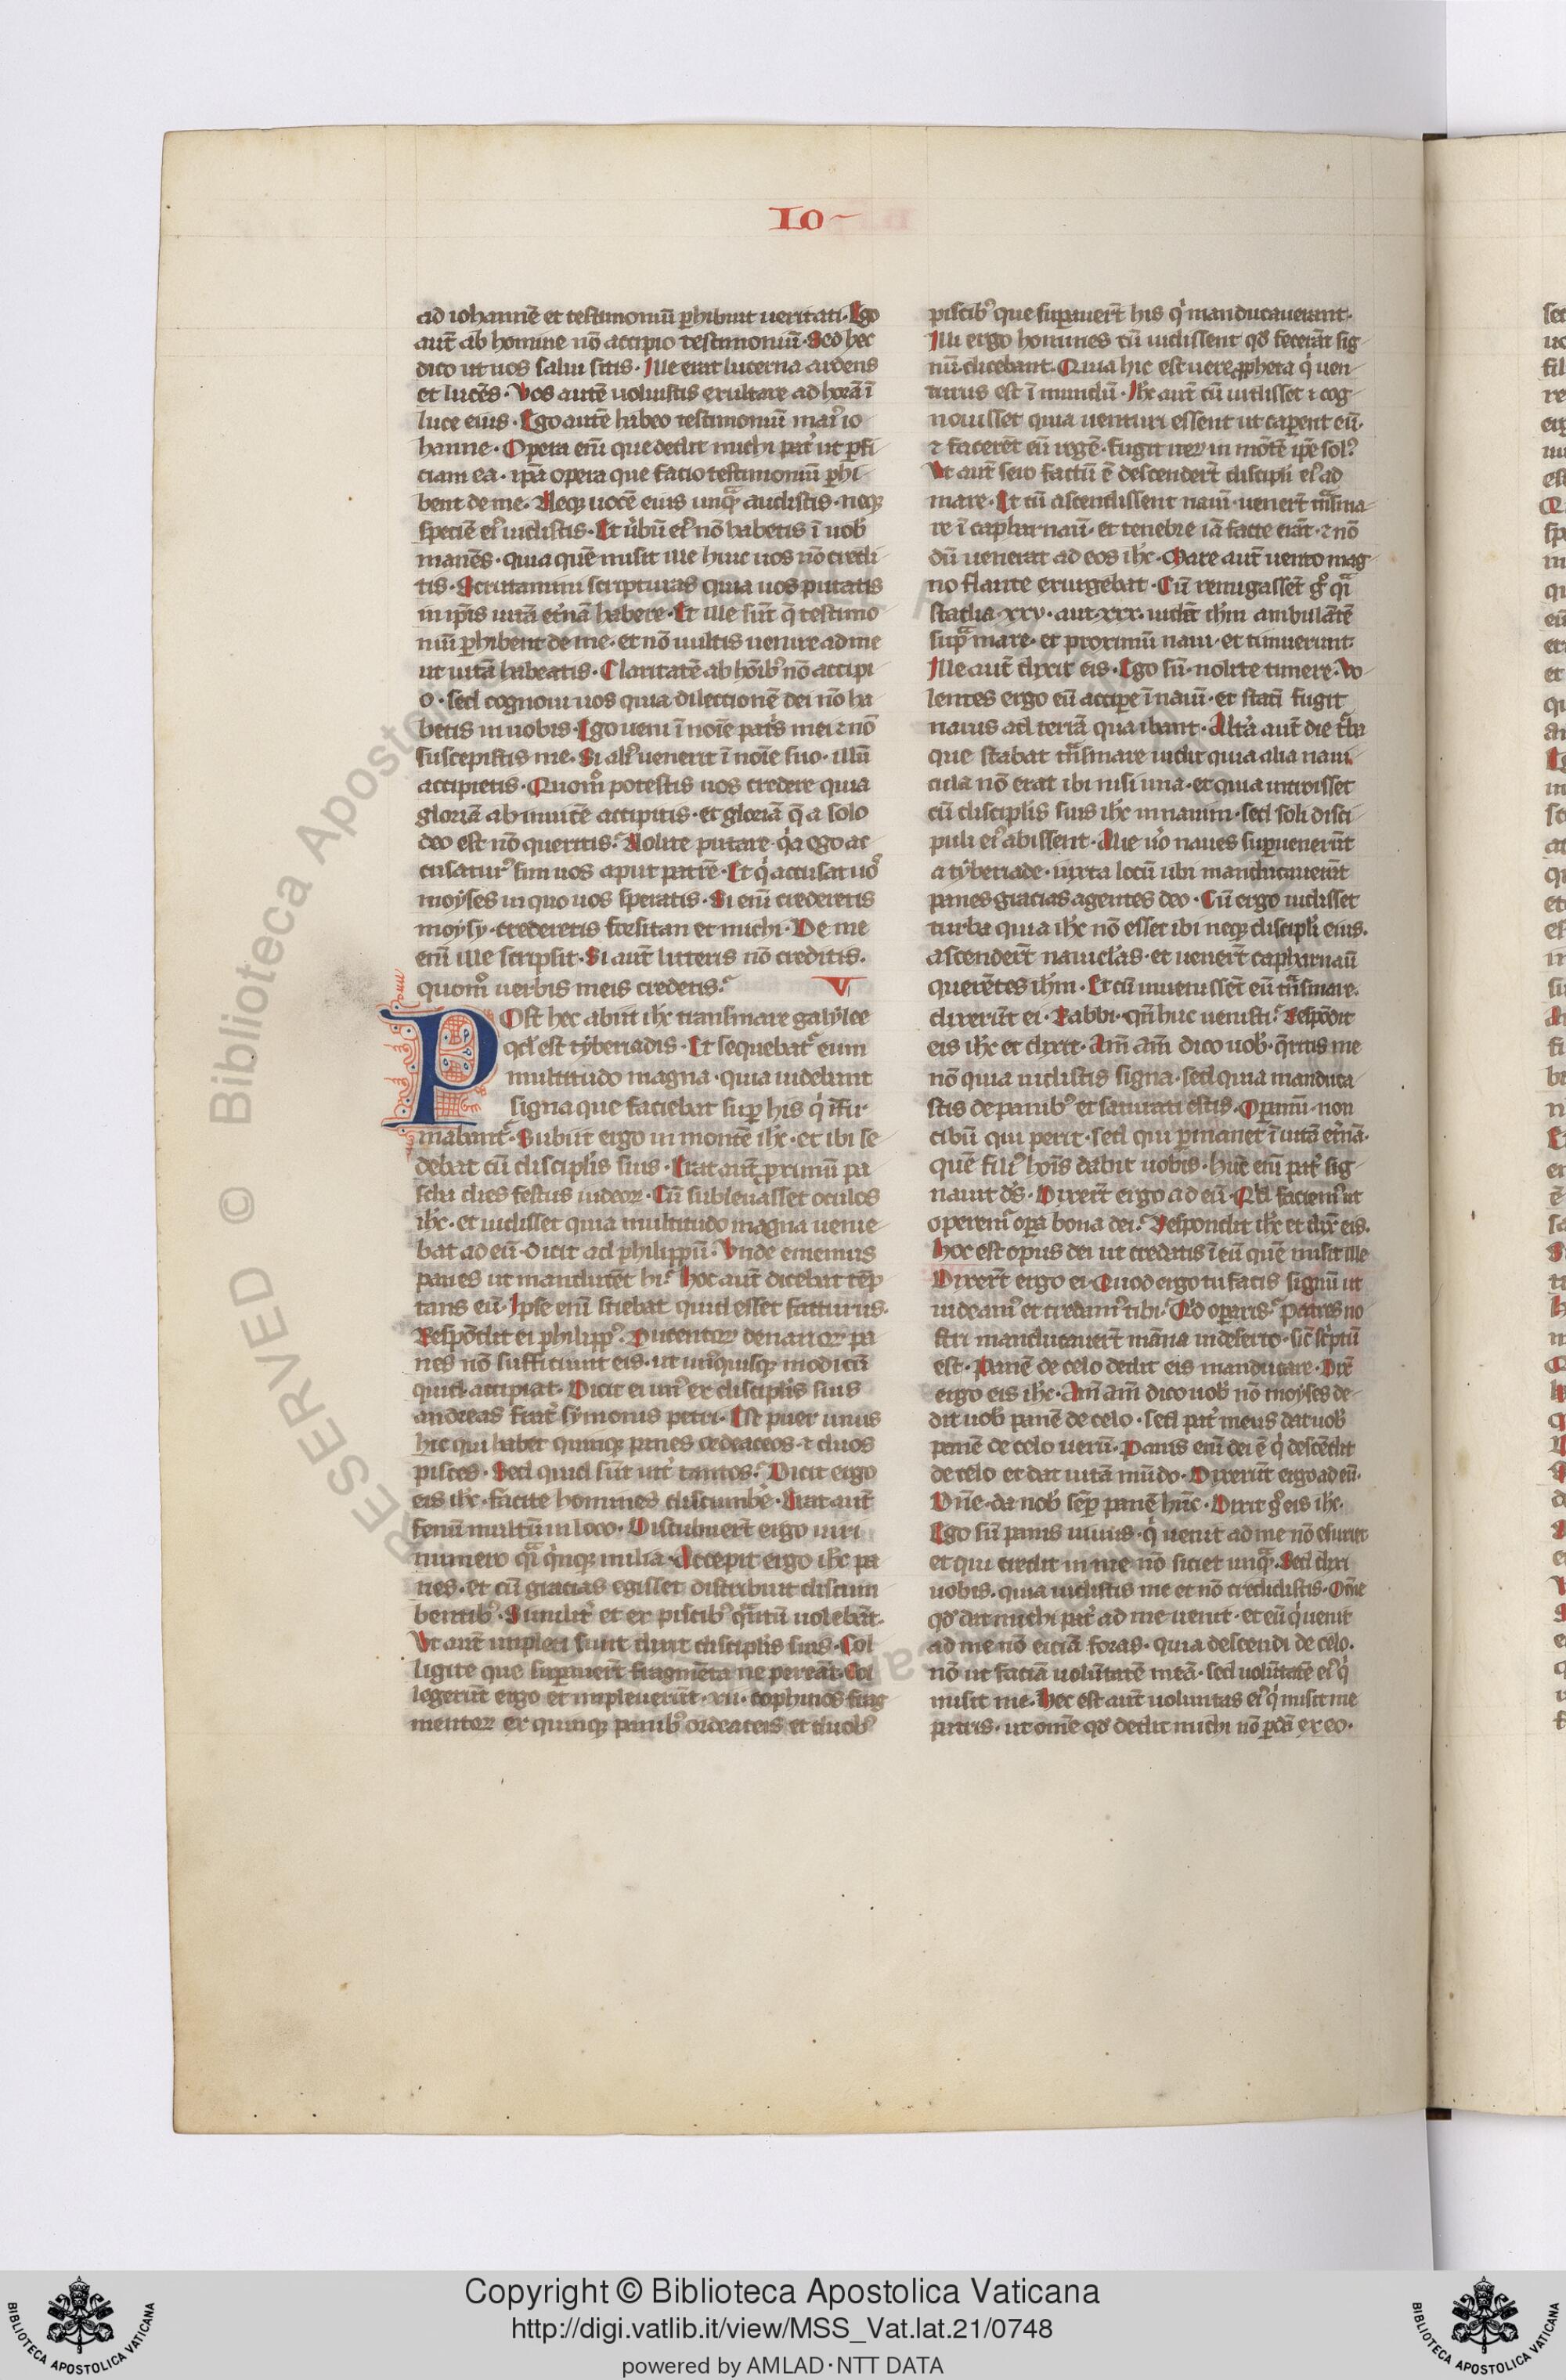 IO
ad iohannē et testimoniū ꝑhibuit ueritati. Ego
aut̄ ab homine nō accipio testimoniū. Sed hec
dico ut uos salui sitis. Ille erat lucerna ardens
et lucēs. Vos autē uoluistis exultare ad horā ī
luce eius. Ego autē habeo testimoniū maiꝰ io
hanne. Opera enī que dedit michi pat̉ ut ꝑfi
ciam ea. ip̄a opera que facio testimoniū ꝑhi
bent de me. Neqꝫ uocē eius unqᷓ audistis. neqꝫ
speciē eiꝰ uidistis. Et ủbū eiꝰ nō habetis ī uob̉
manēs. quia quē misit ille huic uos nō credi
tis. Scrutamini scripturas quia uos putatis
in ip̄is uitā et̉nā habere. Et ille sūt q̄ testimo
niū ꝑhibent de me. et nō uultis uenire ad me
ut uitā habeatis. Claritatē ab hōibꝰ nō accipi
o. sed cognoui uos quia dilectionē dei nō ha
betis in uobis. Ego ueni ī noīe pat̉s mei ⁊ nō
suscepistis me. Si aliꝰ uenerit ī noīe suo. illū
accipietis. Quomͦ potestis uos credere quia
gloriā ab inuicē accipitis. et gloriā q̄ a solo
deo est nō queritis. Nolite putare qꝛ ego ac
cusaturꝰ sim uos aput patrē. Et qͥ accusat uoꝰ
moyses in quo uos speratis. Si enī crederetis
moysy. crederetis forsitan et michi. De me
enī ille scripsit. Si aut̄ litteris nō creditis.
quomͦ uerbis meis credetis.
VI
POst hec abiit ih̄c transmare galylee
qd̉ est tyberiadis. Et sequebat̉ eum
multitudo magna. quia uidebant
signa que faciebat suꝑ his qͥ īfir
mabant̉. Subiit ergo in montē ih̄c. et ibi se
debat cū disciplis suis. Erat aut̄ proximū pa
scha dies festus iudeoꝝ. Cū subleuasset oculos
ih̄c. et uidisset quia multitudo magna uenie
bat ad eū. dicit ad philippū. Vnde ememus
panes ut manducēt hi. Hoc aut̄ dicebat tēp
tans eū. Ipse enī sciebat quid esset facturus.
Respōdit ei philippꝰ. Ducentoꝝ denarioꝝ pa
nes nō sufficiunt eis. ut unꝰquisqꝫ modicū
quid accipiat. Dicit ei unꝰ ex disciplis suis
andreas frat̉ symonis petri. Est puer unus
hic qui habet quinqꝫ panes ordeaceos ⁊ duos
pisces. Sed quid sūt int̉ tantos. Dicit ergo
eis ih̄c. facite homines discumbẻ. Erat aut̄
fenū multū in loco. Discubuer̄t ergo uiri
numero qᷓi qͥnqꝫ milia. Accepit ergo ih̄c pa
nes. et cū gracias egisset distribuit discum
bentibꝰ. Similit̉ et ex piscibꝰ qᷓtū uolebāt.
Vt aut̄ impleti sunt dixit disciplis suis. Col
ligite que suꝑauer̄t fragmēta ne pereāt. Col
legerūt ergo et impleuerūt. xii. cophinos frag
mentoꝝ ex quinqꝫ panibꝰ ordeaceis et duobꝰ
piscibꝰ que suꝑauer̄t his qͥ manducauerant.
Illi ergo homines cū uidissent qd̉ fecerāt sig
nū. dicebant. Quia hic est uere ꝓpheta qͥ uen
turus est ī mundū. Ih̄c aut̄ cū uidisset ⁊ cog
nouisset quia uenturi essent ut caꝑent eū.
⁊ facerēt eū regē. fugit iteꝝ in mōtē ip̄e solꝰ
Vt aut̄ sero factū ē descender̄t discipli eiꝰ ad
mare. Et cū ascendissent nauī. uener̄t tᷓsma
re ī capharnaū. et tenebre iā facte erāt. ⁊ nō
dū uenerat ad eos ih̄c. Mare aut̄ uento mag
no flante exurgebat. Cū remigasset̄ gͦ qᷓi
stadia. xxv. aut. xxx. uidēt ih̄m ambulātē
supᷓ mare. et proximū naui. et timuerunt.
Ille aut̄ dixit eis. Ego sū. nolite timere. Vo
lentes ergo eū acciꝑe ī nauī. et statī fugit
nauis ad terrā qua ibant. Alt̉a aut̄ die t̉ba
que stabat tᷓsmare uidit quia alia naui
cula nō erat ibi nisi una. et quia introisset
cū disciplis suis ih̄c in nauim. sed soli disci
puli eiꝰ abissent. Alie ủo naues suꝑuenerūt
a tyberiade. iuxta locū ubi manducauerūt
panes gracias agentes deo. Cū ergo uidisset
turba quia ih̄c nō esset ibi neqꝫ discipli eius.
ascender̄t nauiclas. et uener̄t capharnaū
querētes ih̄m. Et cū inuenissēt eū tᷓsmare.
dixerūt ei. Rabbi. qn̄ huc uenisti. Respōdit
eis ih̄c et dixit. Am̄ am̄ dico uob̉. q̄ritis me
nō quia uidistis signa. sed quia manduca
stis de panibꝰ et saturati estis. Oꝑamī. non
cibū qui perit. sed qui ꝑmanet ī uitā et̉nā.
quē filiꝰ hoīs dabit uobis. hūc enī pat̉ sig
nauit ds̄. Dixer̄t ergo ad eū. Qd̉ faciemꝰ ut
operemꝰ oꝑa bona dei. Respondit ih̄c et dix̄ eis.
Hoc est opus dei ut credatis ī eū quē misit ille
Dixer̄t ergo ei. Quod ergo tu facis signū ut
uideamꝰ et credamꝰ tibi. Qd̉ oꝑaris. Patres no
stri manducauer̄t māna in deserto. sic̄ sc̄ptū
est. Panē de celo dedit eis manducare. Dix̄
ergo eis ih̄c. Am̄ am̄ dico uob̉ nō moyses de
dit uob̉ panē de celo. sed pat̉ meus dat uob̉
panē de celo uerū. Panis enī dei ē qͥ descēdit
de celo et dat uitā mūdo. Dixerūt ergo ad eū.
Dn̄e. da nob̉ sēꝑ panē hūc. Dixit gͦ eis ih̄c.
Ego sū panis uiuus. qͥ uenit ad me nō esuriet
et qui credit in me nō siciet unqᷓ. Sed dixi
uobis. quia uidistis me et nō credidistis. Om̄e
qd̉ dat michi pat̉ ad me uenit. et eū qͥ uenit
ad me nō eiciā foras. quia descendi de celo.
nō ut faciā uolūtatē meā. sed uolūtatē eiꝰ qͥ
misit me. Hec est aut̄ uoluntas eiꝰ qͥ misit me
patris. ut om̄e qd̉ dedit michi nō ꝑdā ex eo.
RESERVED © Biblioteca Apostolica
Copyright © Biblioteca Apostolica Vaticana
http://digi.vatlib.it/view/MSS_Vat.lat.21/0748
powered by AMLAD·NTT DATA
BIBLIOTECA APOSTOLICA VATICANA
BIBLIOTECA APOSTOLICA VATICANA